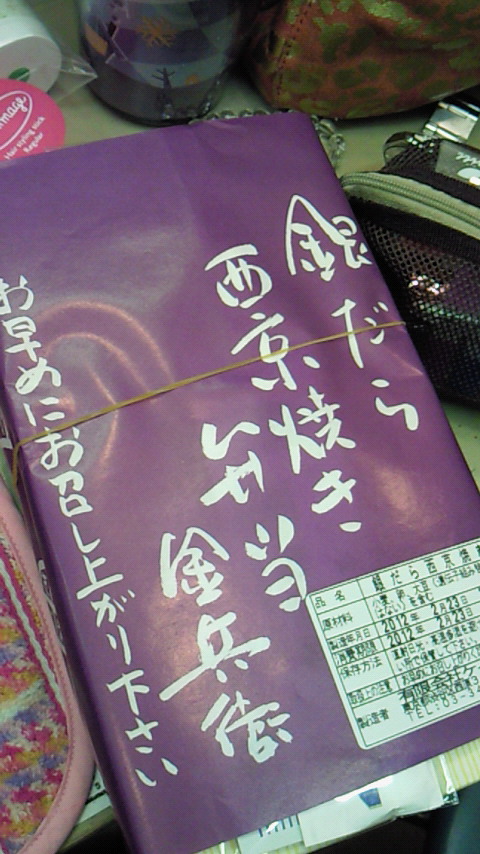 銀だら
西京焼き
弁当
金兵衛
お早めにお召し上がり下さい
品名 銀だら西京焼
原材料 小麦、卵、大豆
を含む
製造年月日 2012年 2月23日
消費期限 2012年 2月23日
保存方法
製造者
TEL:03-3
Hair styling stick
Regular